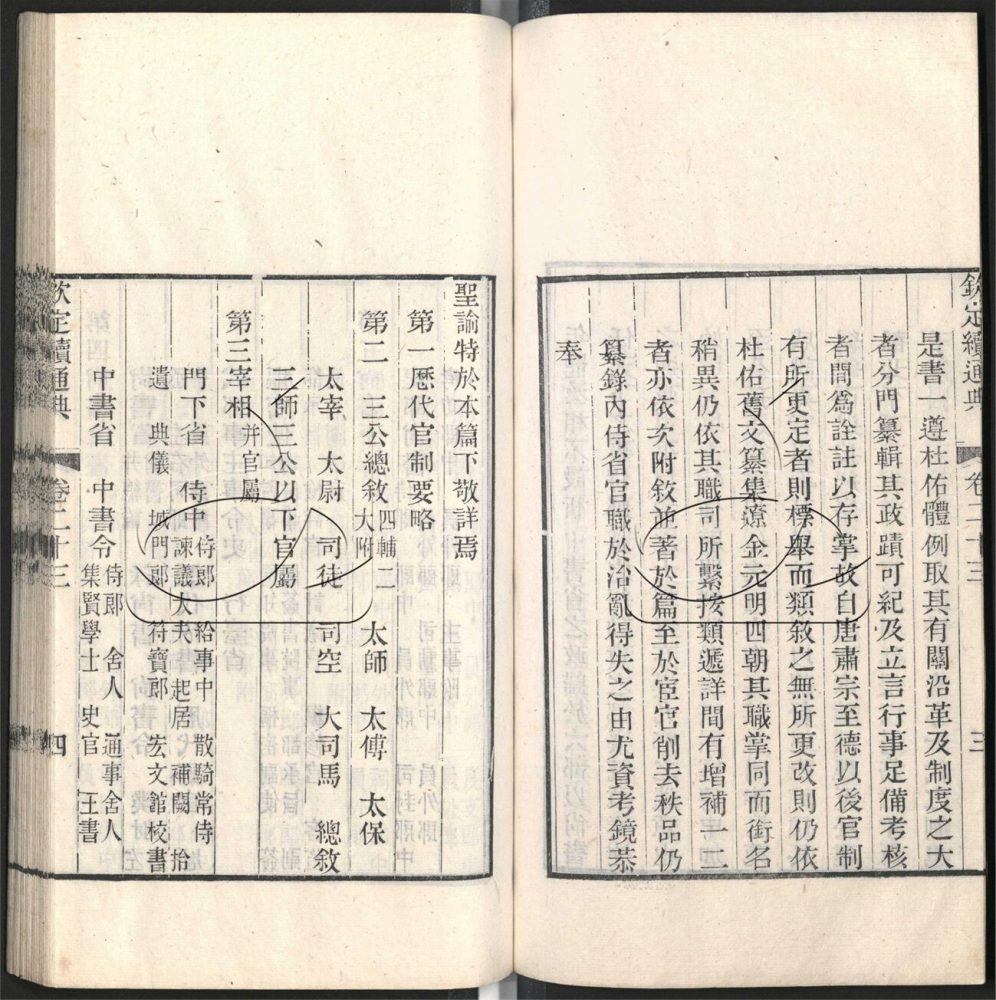 欽定續通典 卷二十三 三
是書一遵杜佑體例取其有關沿革及制度之大
者分門纂輯其政蹟可紀及立言行事足備考核
者間爲詮註以存掌故自唐肅宗至德以後官制
有所更定者則標舉而類敘之無所更改則仍依
杜佑舊文纂集遼金元明四朝其職掌同而銜名
稍異仍依其職司所繫按類遞詳間有增補一二
者亦依次附敘並著於篇至於宦官削去秩品仍
纂錄內侍省官職於治亂得失之由尤資考鏡恭
奉
聖諭特於本篇下敬詳焉
第一歷代官制要略
第二 三公總敘四輔二大附 太師 太傅 太保
太宰 太尉 司徒 司空 大司馬 總敘
三師三公以下官屬
第三宰相并官屬
門下省 侍中侍郎 給事中 散騎常侍 諫議大夫 起居 補闕 拾
遺 典儀 城門郎 符寶郎 宏文館校書
中書省 中書令侍郎 舍人 通事舍人 集賢學士 史官 主書
欽定續通典 卷二十三 四